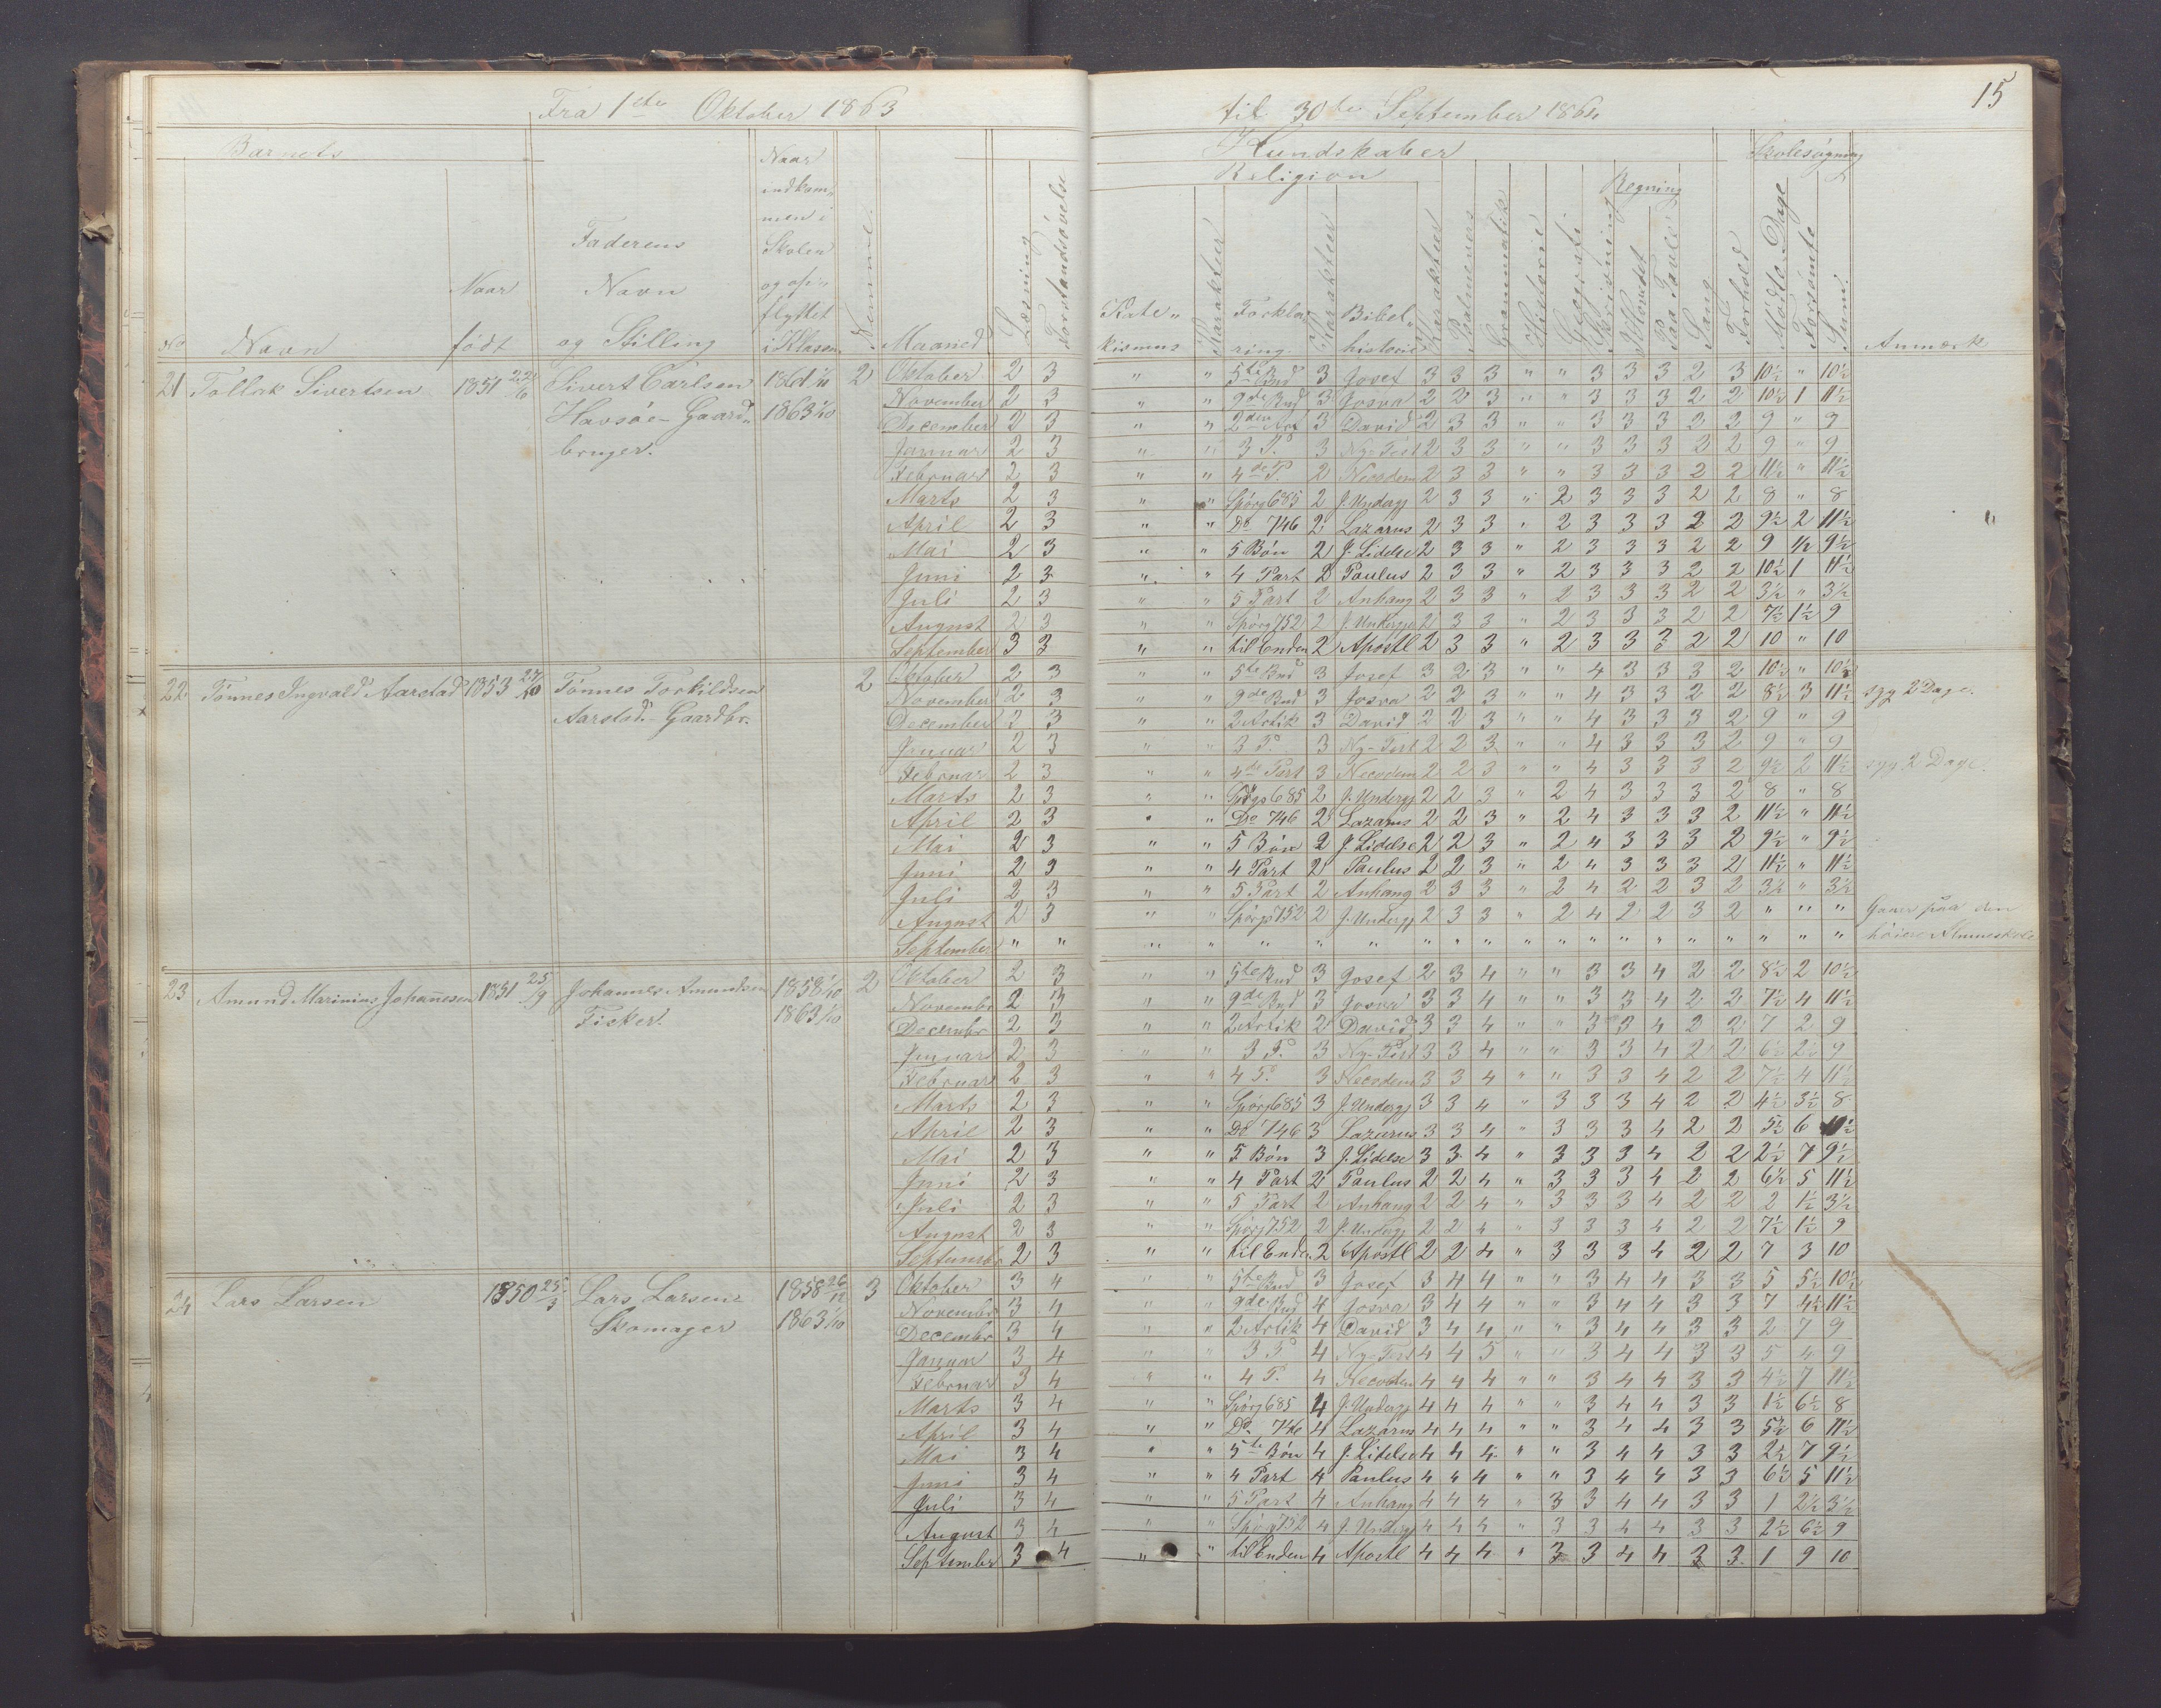 15
Fra 1ste Oktober 1863 til 30te September 1864
Barnets
No
Navn
Naar født
Faderens Navn og Stilling
Naar indkommen i Skolen og opflyttet i Klassen
Nemme
Maaned
Læsning
Forstandsøvelse
Kundskaber
Religion
Katekismus
Karakter
Forklaring
Karakter
Bibelhistorie
Karakter
Psalmevers
Grammatik
Historie
Geografi
Skrivning
Regning
I Hovedet
Paa Tavle
Sang
Forhold
Skolesøgning
Mødte Dage
Forsømte
Summ.
Anmærk
21 Tollak Sivertsen 1851 Sivert Carlsen 1861 1/10 2
Havsøe - Gaard„ 1863 1/10
bruger.
Oktober 2 3 " " 5te Bud 3 Josef 3 3 3 " " 3 3 3 2 3 10½ " 10½
November 2 3 " " 9de Bud 3 Josva 2 2 3 " " 3 3 3 2 2 10½ 1 11½
December 2 3 " " 2den Art 3 David 2 3 3 " " 3 3 3 2 2 9 " 9
Januar 2 3 " " 3 P. 3 Ny-Test 2 3 3 " " 3 3 3 2 2 9 " 9
Februar 2 3 " " 4de P. 2 Necodem 2 3 3 " " 3 3 3 2 2 11½ " 11½
Marts 2 3 " " Spørg 685 2 J. Undergj 2 3 3 " 2 3 3 3 2 2 8 " 8
April 2 3 " " Do 746 2 Lazarus 2 3 3 " 2 3 3 3 2 2 9½ 2 11½
Mai 2 3 " " 5 Bøn 2 J. Lidelse 2 3 3 " 2 3 3 3 2 2 9 ½ 9½
Juni 2 3 " " 4 Part 2 Paulus 2 3 3 " 2 3 3 3 2 2 10½ 1 11½
Juli 2 3 " " 5 Part 2 Anhang 2 3 3 " 2 3 3 3 2 2 3½ " 3½
August 2 3 " " Spørg 752 2 J. Undergj 2 3 3 " 2 3 3 3 2 2 7½ 1½ 9
September 3 3 " " til Enden 2 Apostl 2 3 3 " 2 3 3 3 2 2 10 " 10
22 Tønnes Ingvald Aarstad 1853 27/10 Tønnes Torkildsen 2
Aarstad - Gaardbr.
Oktober 2 3 " " 5te Bud 3 Josef 3 2 3 " " 4 3 3 3 2 10½ " 10½
November 2 3 " " 9de Bud 3 Josva 2 2 3 " " 4 3 3 2 2 8½ 3 11½ syg 2 Dage.
December 2 3 " " 2 Artik 3 David 2 2 3 " " 4 3 3 3 2 9 " 9
Januar 2 3 " " 3 P. 3 Ny-Test 2 2 3 " " 4 3 3 3 2 9 " 9
Februar 2 3 " " 4de Part 3 Necodem 2 2 3 " " 4 3 3 3 2 9½ 2 11½ syg 2 Dage.
Marts 2 3 " " Spørgs 685 2 J. Undergj 2 2 3 " 2 4 3 3 3 2 8 " 8
April 2 3 " " Do 746 2 Lazarus 2 2 3 " 2 4 3 3 3 2 11½ " 11½
Mai 2 3 " " 5 Bøn 2 J. Lidelse 2 2 3 " 2 4 3 3 3 2 9½ " 9½
Juni 2 3 " " 4 Part 2 Paulus 2 2 3 " 2 4 3 3 3 2 11½ " 11½
Juli 2 3 " " 5 Part 2 Anhang 2 3 3 " 2 4 2 2 3 2 3½ " 3½
August 2 3 " " Spørgs 752 2 J. Undergj 2 3 3 " 2 4 2 2 3 2 " " " Gaaer paa den
September " " " " " " " " " " " " " " " " " " " " høiere Almueskole
23 Amund Marinius Johannesen 1851 25/9 Johannes Amundsen 1858 1/10 2
Fisker. 1863 1/10
Oktober 2 3 " " 5te Bud 3 Josef 2 3 4 " " 3 3 4 2 2 8½ 2 10½
Novembr 2 3 " " 9de Bud 3 Josva 3 3 4 " " 3 3 4 2 2 7½ 4 11½
Decembr 2 3 " " 2 Artik 2 David 3 3 4 " " 3 3 4 2 2 7 2 9
Januar 2 3 " " 3 P. 3 Ny-Test 3 3 4 " " 3 3 4 2 2 6½ 2½ 9
Februar 2 3 " " 4 P. 3 Necodem 3 3 4 " " 3 3 4 2 2 7½ 4 11½
Marts 2 3 " " Spørg 685 3 J. Undergj 3 3 4 " 3 3 3 4 2 2 4½ 3½ 8
April 2 3 " " Do 746 3 Lazarus 3 3 4 " 3 3 3 4 2 2 5½ 6
Mai 2 3 " " 5 Bøn 3 J. Lidelse 3 3 4 " 3 3 3 4 2 2 2½ 7 9½
Juni 2 3 " " 4 Part 2 Paulus 2 2 4 " 3 3 3 4 2 2 6½ 5 11½
Juli 2 3 " " 5 Part 2 Anhang 2 2 4 " 3 3 3 4 2 2 2 1½ 3½
August 2 3 " " Spørg 752 2 J. Undergj 2 2 4 " 3 3 3 4 2 2 7½ 1½ 9
Septembr 2 3 " " til Enden 2 Apostl 2 2 4 " 3 3 3 4 2 2 7 3 10
24 Lars Larsen 1850 25/3 Lars Larsen 1858 26/12 3
Skomager 1863 1/10
Oktober 3 4 " " 5te Bud 3 Josef 3 4 4 " " 3 4 4 3 3 5 5½ 10½
Novembr 3 4 " " 9de Bud 4 Josva 3 4 4 " " 3 4 4 3 3 7 4½ 11½
Decembr 3 4 " " 2 Artik 4 David 3 4 4 " " 3 4 4 3 3 2 7 9
Januar 3 4 " " 3 P 4 Ny-Test 4 4 5 " " 3 4 4 3 3 5 4 9
Februar 3 4 " " 4 P. 4 Necodem 4 4 4 " " 3 4 4 3 3 4½ 7 11½
Marts 3 4 " " Spørg 685 4 J. Undergj 4 4 4 " " 3 4 4 3 3 1½ 6½ 8
April 3 4 " " Do 746 4 Lazarus 4 4 4 " " 3 4 4 3 3 5½ 6 11½
Mai 3 4 " " 5te Bøn 4 J. Lidelse 4 4 4 " " 3 4 4 3 3 2½ 7 9½
Juni 3 4 " " 4 Part 4 Paulus 4 4 4 " " 3 4 4 3 3 6½ 5 11½
Juli 3 4 " " 5 Part 4 Anhang 4 4 4 " 3 3 4 4 3 3 1 2½ 3½
August 3 4 " " Spørg 752 4 J. Undergj 4 4 4 " 3 3 4 4 3 3 2½ 6½ 9
Septembr 3 4 " " til Enden 4 Apostl 4 4 4 " 3 3 4 4 3 3 1 9 10